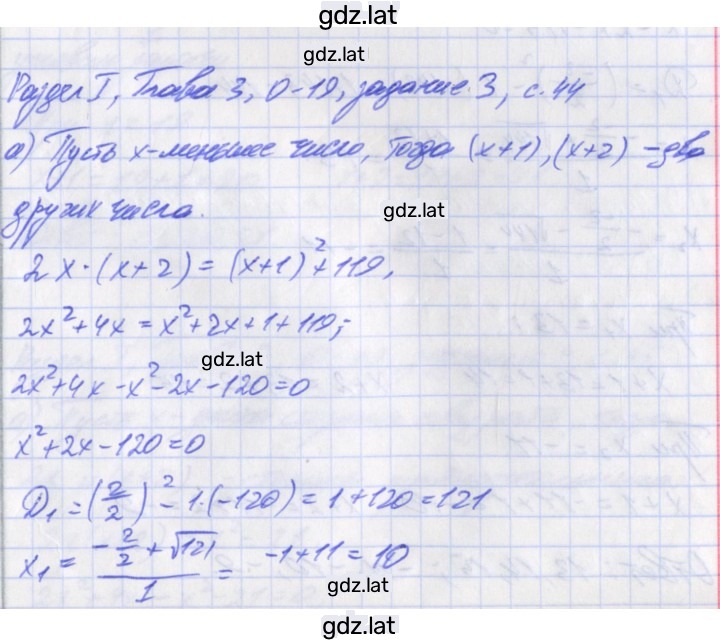 gdz.lat
gdz.lat
Раздел I, Глава 3, О-19, задание 3, с.44
а) Пусть x-меньшее число, тогда (x+1), (x+2) - два
других числа.
gdz.lat
2x·(x+2) = (x+1)²+119,
2x²+4x = x²+2x+1+119;
gdz.lat
2x²+4x-x²-2x-120=0
x²+2x-120=0
D₁ = (2/2)² - 1·(-120) = 1+120 = 121
x₁ = (-2/2 + √121)/1 = -1+11 = 10
gdz.lat
gdz.lat